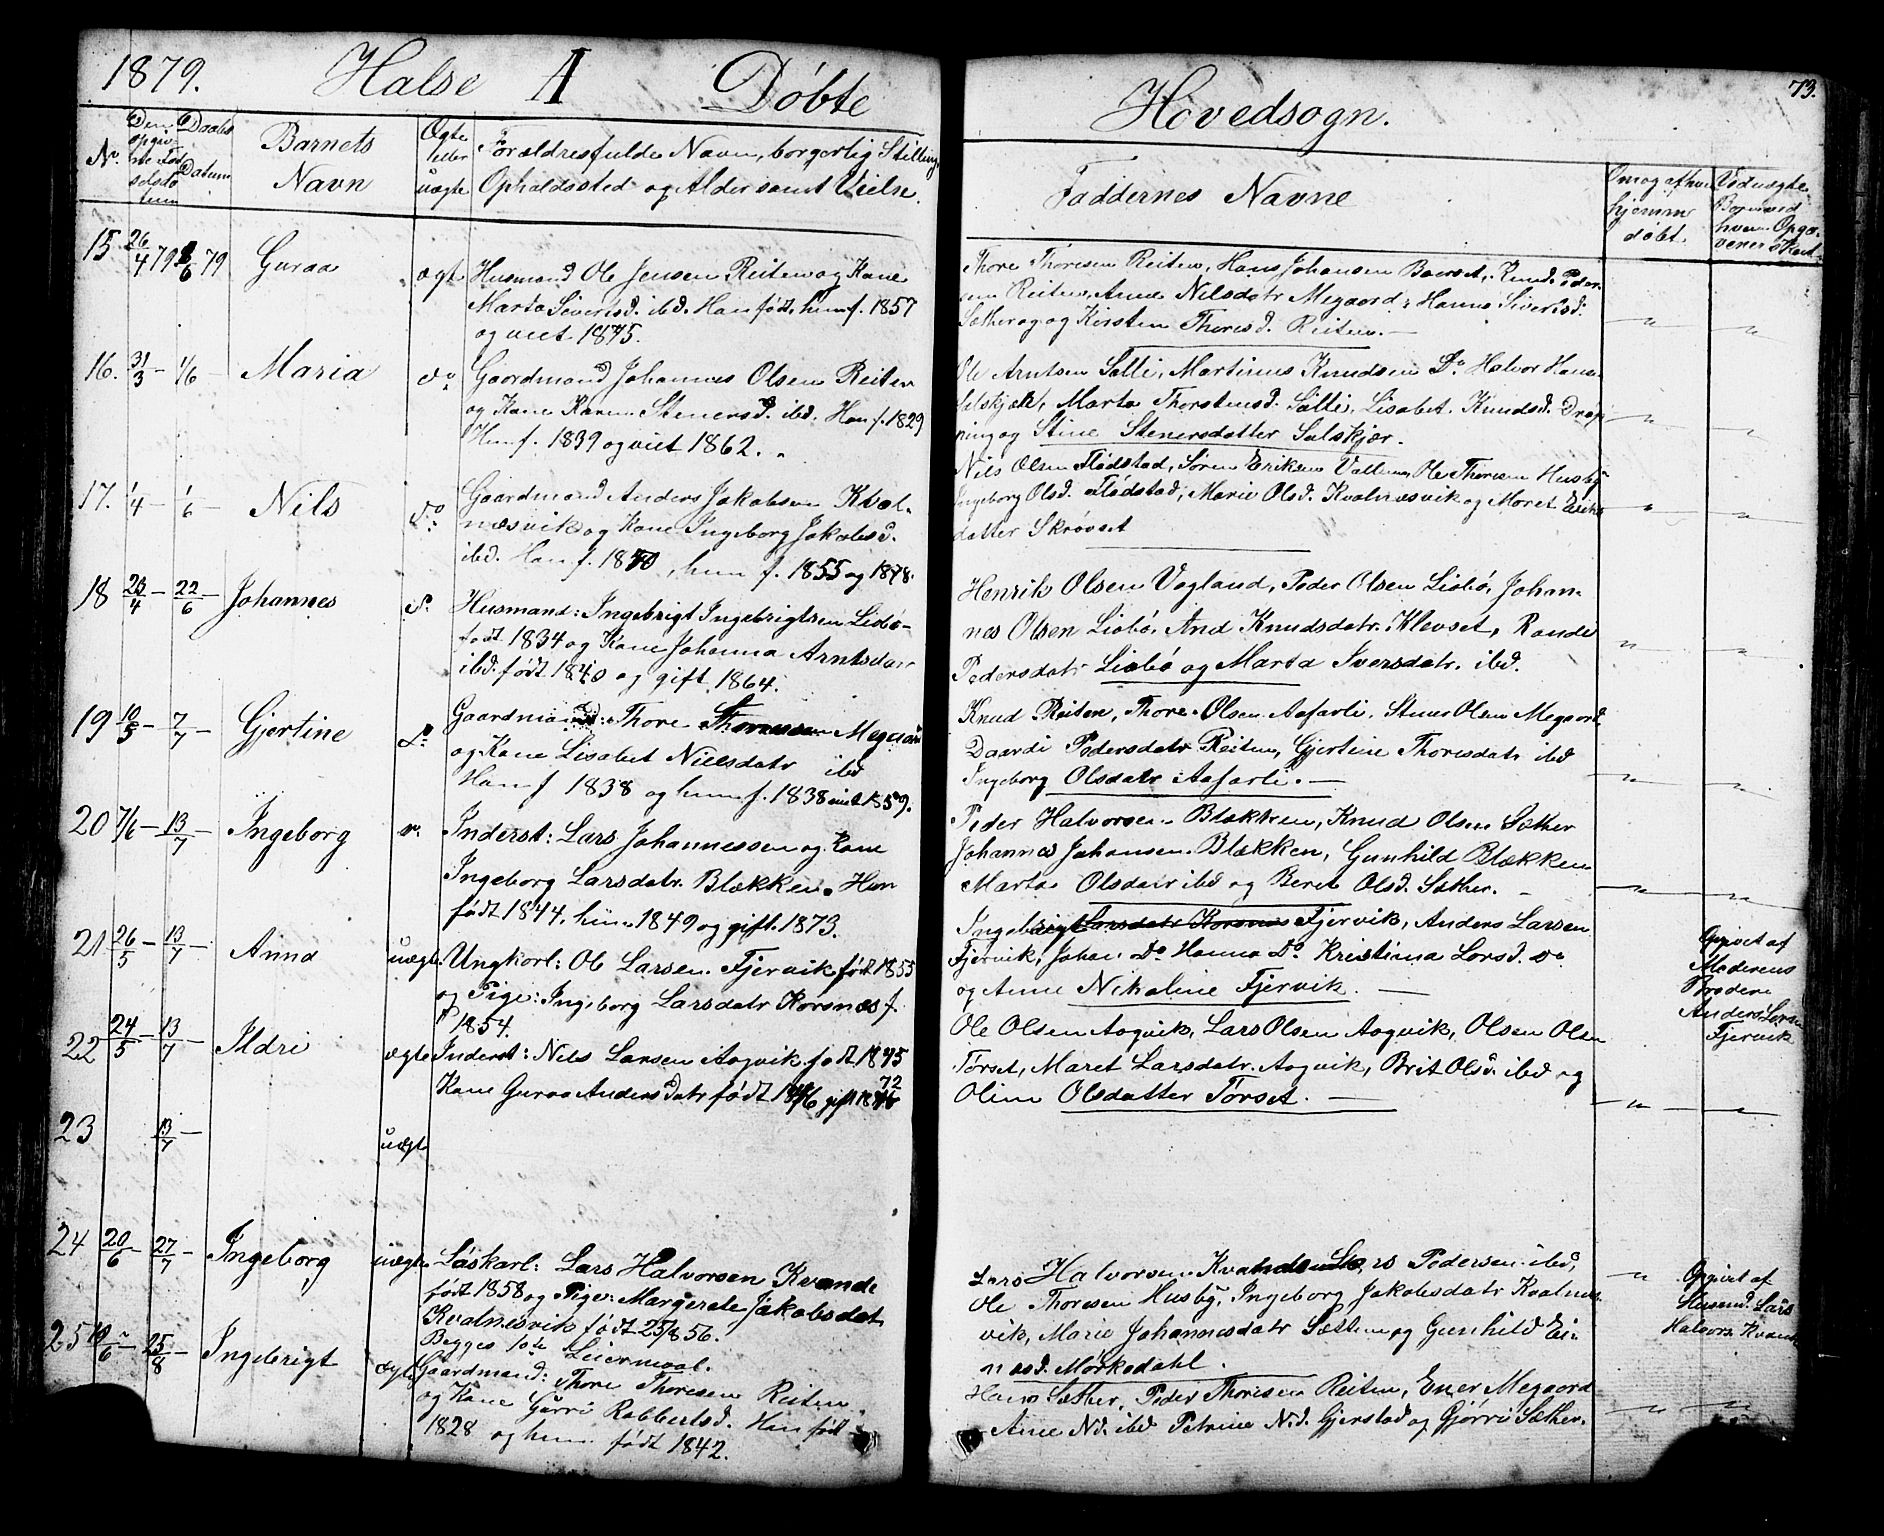 1879. Halse A Døbte
Hovedsogn. 73.
No. Den opgivne Fødselsdatum Daabs Datum Barnets Navn Ægte eller uægte Forældres fulde Navn, borgerlig Stilling, Opholdssted og Alder samt Vielse.
Faddernes Navne
Om og af hvem hjemmedøbt. Ved uægte Børn ved hvem Opgavener skeet.
15. 26/4 79 1/6 79 Guraa ægte Husmand Ole Jensen Reiten og Kone
Marta Sivertsd. ibd. Han født, hun f. 1857
og viet 1875.
Thore Thoresen Reiten, Hans Johansen Boerset, Knud Peder-
sen Reiten, Anne Nilsdatr Megaard, Hanna Siversd.
Sæther og Kirsten Thoresd. Reiten. —
16. 31/3 — 1/6 — Maria do. Gaardmand Johannes Olsen Reiten
og Kone Karen Stenersd. ibd. Han f. 1829
Hun f. 1839 og viet 1862.
Ole Arntsen Sætti, Martinus Knudsen Do. Halvor Hans.
Salskjæl, Marta Thorstensd. Sætti, Lisabet Knudsd. Drøp-
ping og Stine Stenersdatter Salskjær.
17. 1/4 — 1/6 — Nils do. Gaardmand Anders Jakobsen Kval-
næsvik og Kone Ingeborg Jakobsd.
ibd. Han f. 1850, hun f. 1855 og 1878.
Nils Olsen Flødstad, Søren Eriksen Vullum, Ole Thoresen Husby
Ingeborg Olsd. Flødstad, Marie Olsd. Kvalnæsvik og Maret Eriks
datter Skrøvset
18 23/4 — 22/6 — Johannes do. Husmand: Ingebrigt Ingebrigtsen Liabø
født 1834 og Kone Johanna Arntsdatr
ibd. født 1840 og gift 1864.
Henrik Olsen Vagland, Peder Olsen Liabø, Johan-
nes Olsen Liabø, And Knudsdatr. Klevset, Rande
Pedersdatr Liabø og Marta Iversdatr. ibd.
19 10/5 — 7/7 — Gjertine do. Gaardmand: Thore Thoresen Megaard
og Kone Lisabet Nielsdatr ibd
Han f 1838 og hun f. 1838 viet 1859.
Knud Reiten, Thore Olsen Aafarli, Stener Olsen Megaard
Daardi Pedersdatr Reiten, Gjertine Thoresdatr ibd
Ingeborg Olsdatr Aafarli. —
20 7/6 — 13/7 — Ingeborg do. Inderst: Lars Johannessen og Kone
Ingeborg Larsdatr. Blækken. Han
født 1844, hun 1849 og gift 1873.
Peder Halvorsen Blækken, Knud Olsen Sæther
Johannes Johansen Blækken, Gunhild Blækken
Marta Olsdatr ibd og Beret Olsd. Sæther. —
21. 26/5 — 13/7 — Anna uægte Ungkarl: Ole Larsen Fjervik født 1855
og Pige: Ingeborg Larsdatr Korsnæs f.
1854.
Ingebrigt Larsdatr Korsnæs Fjervik, Anders Larsen
Fjervik, Johan Do. Hanna Do. Kristina Larsd. do
og Anne Nikoline Fjervik. —
Opgivet af
Moderens
Brodere
Anders Larsen
Fjervik
22 24/5 — 13/7 — Ildri ægte Inderst: Nils Larsen Aagvik født 1845
Kone Guraa Andersdatr født 1846 gift 1872
Ole Olsen Aagvik, Lars Olsen Aagvik, Olsen Olsen
Tørset, Maret Larsdatr. Aagvik, Brit Olsd. ibd og
Oline Olsdatter Tørset. —
23 13/7 — uægte
24 20/6 — 27/7 — Ingeborg uægte Løskarl: Lars Halvorsen Kvande
født 1858 og Pige: Margerete Jakobsdat
Kvalnesvik født 25/8 56.
Begges 1ste Leiermaal.
Lars Halvorsen Kvande Lars Pedersen ibd,
Ole Thoresen Husby, Ingeborg Jakobsdatr Kvalnes-
vik, Marie Johannesdatr Sætten og Gunhild Ei-
narsd. Mørkedahl.
Opgivet af
Husmd. Lars
Halvors. Kvande
25 /6 — 25/8 — Ingebrigt ægte Gaardmand: Thore Thoresen Reiten
og Kone Gurri Robbertsd. Han født
1828 og hun født 1842.
Hans Sæther, Peder Thoresen Reiten, Ener Megaard
Anne Nd. ibd Petrine Nd. Gjerstad og Gjørri Sæther.